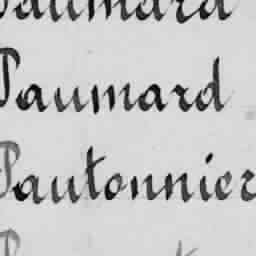 Paumard
Paumard
Pautonnier